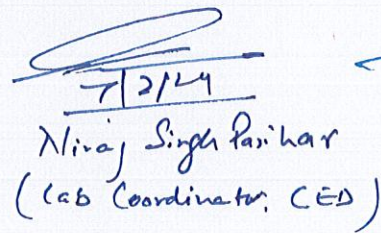 7/2/24
Niraj Singh Parihar
(Lab Coordinator, CED)